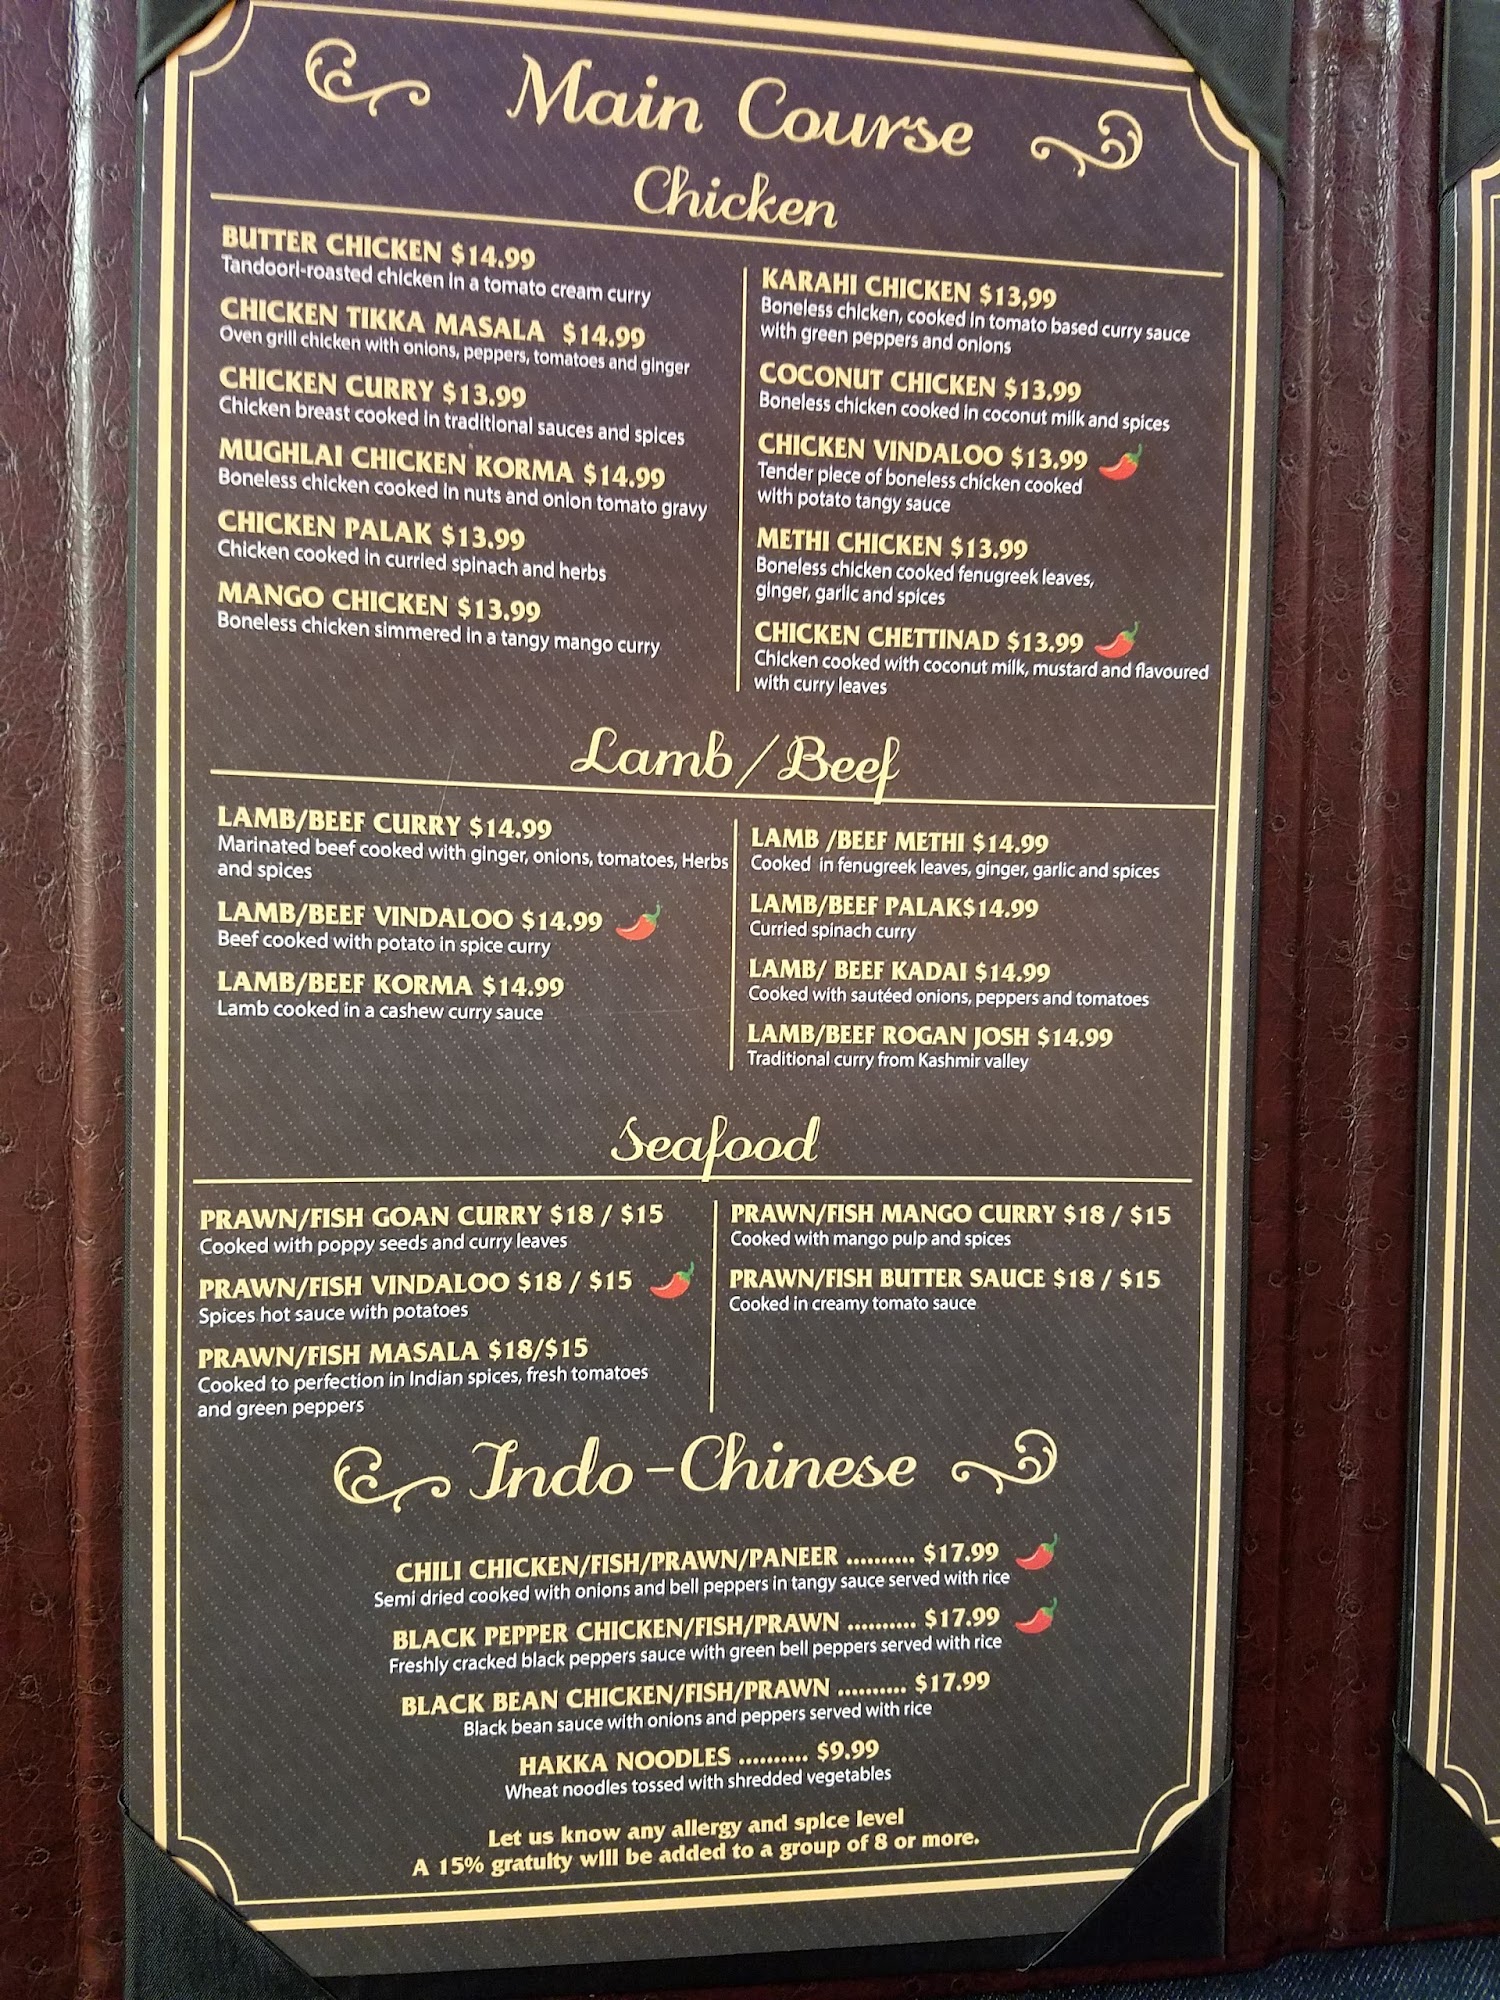 Main Course
Chicken
BUTTER CHICKEN $14.99
Tandoori-roasted chicken in a tomato cream curry
CHICKEN TIKKA MASALA $14.99
Oven grill chicken with onions, peppers, tomatoes and ginger
CHICKEN CURRY $13.99
Chicken breast cooked in traditional sauces and spices
MUGHLAI CHICKEN KORMA $14.99
Boneless chicken cooked in nuts and onion tomato gravy
CHICKEN PALAK $13.99
Chicken cooked in curried spinach and herbs
MANGO CHICKEN $13.99
Boneless chicken simmered in a tangy mango curry
KARAHI CHICKEN $13,99
Boneless chicken, cooked in tomato based curry sauce
with green peppers and onions
COCONUT CHICKEN $13.99
Boneless chicken cooked in coconut milk and spices
CHICKEN VINDALOO $13.99
Tender piece of boneless chicken cooked
with potato tangy sauce
METHI CHICKEN $13.99
Boneless chicken cooked fenugreek leaves,
ginger, garlic and spices
CHICKEN CHETTINAD $13.99
Chicken cooked with coconut milk, mustard and flavoured
with curry leaves
Lamb/Beef
LAMB/BEEF CURRY $14.99
Marinated beef cooked with ginger, onions, tomatoes, Herbs
and spices
LAMB/BEEF VINDALOO $14.99
Beef cooked with potato in spice curry
LAMB/BEEF KORMA $14.99
Lamb cooked in a cashew curry sauce
LAMB /BEEF METHI $14.99
Cooked in fenugreek leaves, ginger, garlic and spices
LAMB/BEEF PALAK$14.99
Curried spinach curry
LAMB/ BEEF KADAI $14.99
Cooked with sautéed onions, peppers and tomatoes
LAMB/BEEF ROGAN JOSH $14.99
Traditional curry from Kashmir valley
Seafood
PRAWN/FISH GOAN CURRY $18 / $15
Cooked with poppy seeds and curry leaves
PRAWN/FISH VINDALOO $18 / $15
Spices hot sauce with potatoes
PRAWN/FISH MASALA $18/$15
Cooked to perfection in Indian spices, fresh tomatoes
and green peppers
PRAWN/FISH MANGO CURRY $18 / $15
Cooked with mango pulp and spices
PRAWN/FISH BUTTER SAUCE $18 / $15
Cooked in creamy tomato sauce
Indo-Chinese
CHILI CHICKEN/FISH/PRAWN/PANEER .......... $17.99
Semi dried cooked with onions and bell peppers in tangy sauce served with rice
BLACK PEPPER CHICKEN/FISH/PRAWN .......... $17.99
Freshly cracked black peppers sauce with green bell peppers served with rice
BLACK BEAN CHICKEN/FISH/PRAWN .......... $17.99
Black bean sauce with onions and peppers served with rice
HAKKA NOODLES .......... $9.99
Wheat noodles tossed with shredded vegetables
Let us know any allergy and spice level
A 15% gratuity will be added to a group of 8 or more.